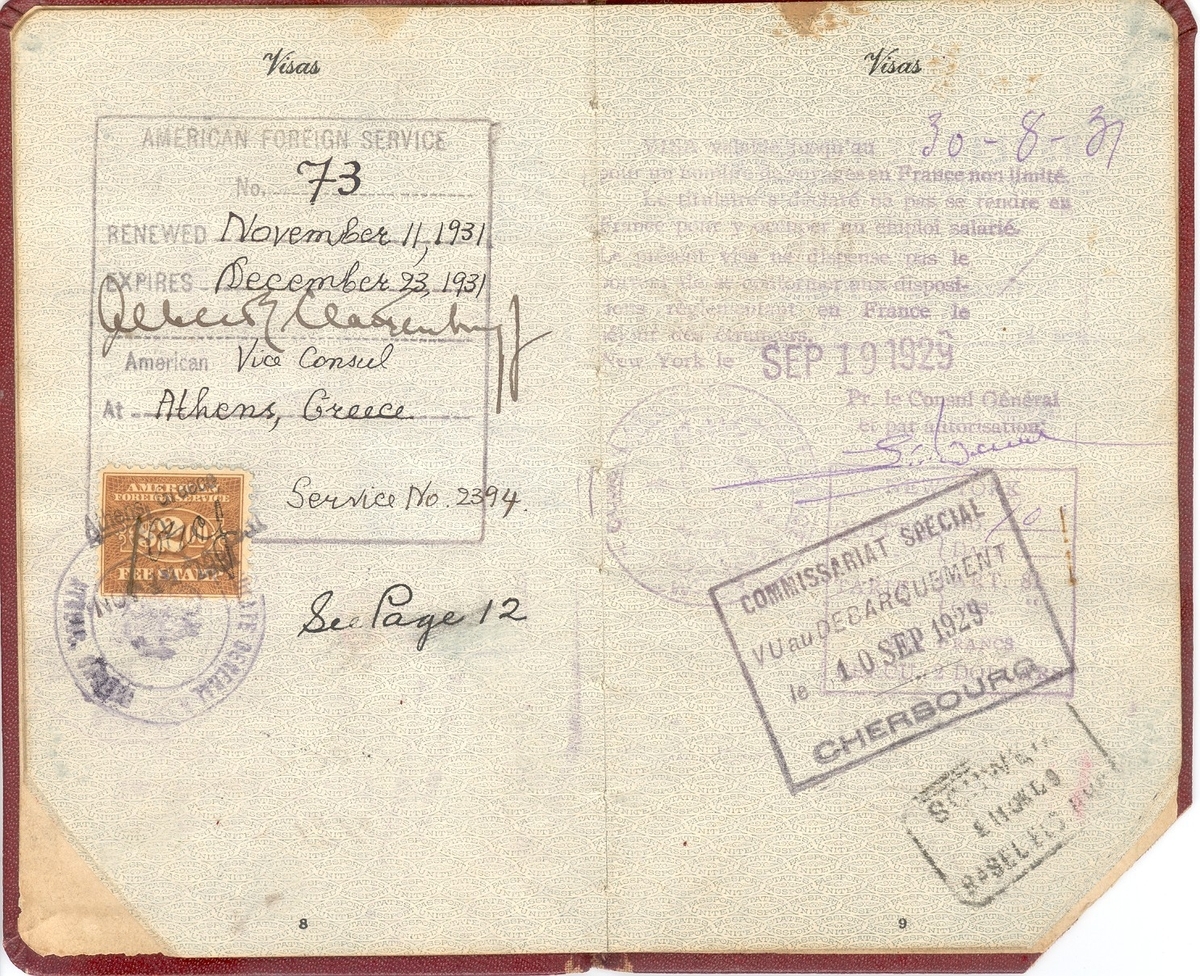 Visas
AMERICAN FOREIGN SERVICE
No. 73
RENEWED November 11, 1931
EXPIRES December 23, 1931
American Vice Consul
At Athens, Greece
Service No. 2394.
AMERICAN
FOREIGN SERVICE
FEE STAMP
See Page 12
8
Visas
VISA valable jusqu'au 30-8-31
pour un nombre de voyages en France non limité.
Le titulaire a déclaré ne pas se rendre en
France pour y occuper un emploi salarié.
Le présent visa ne dispense pas le
de se conformer aux disposi-
tions réglementant en France le
séjour des étrangers.
New York le SEP 19 1929
Pr. le Consul Général
et par autorisation,
COMMISSARIAT SPECIAL
VU au DEBARQUEMENT
le 10 SEP 1929
CHERBOURG
FRANCS
9